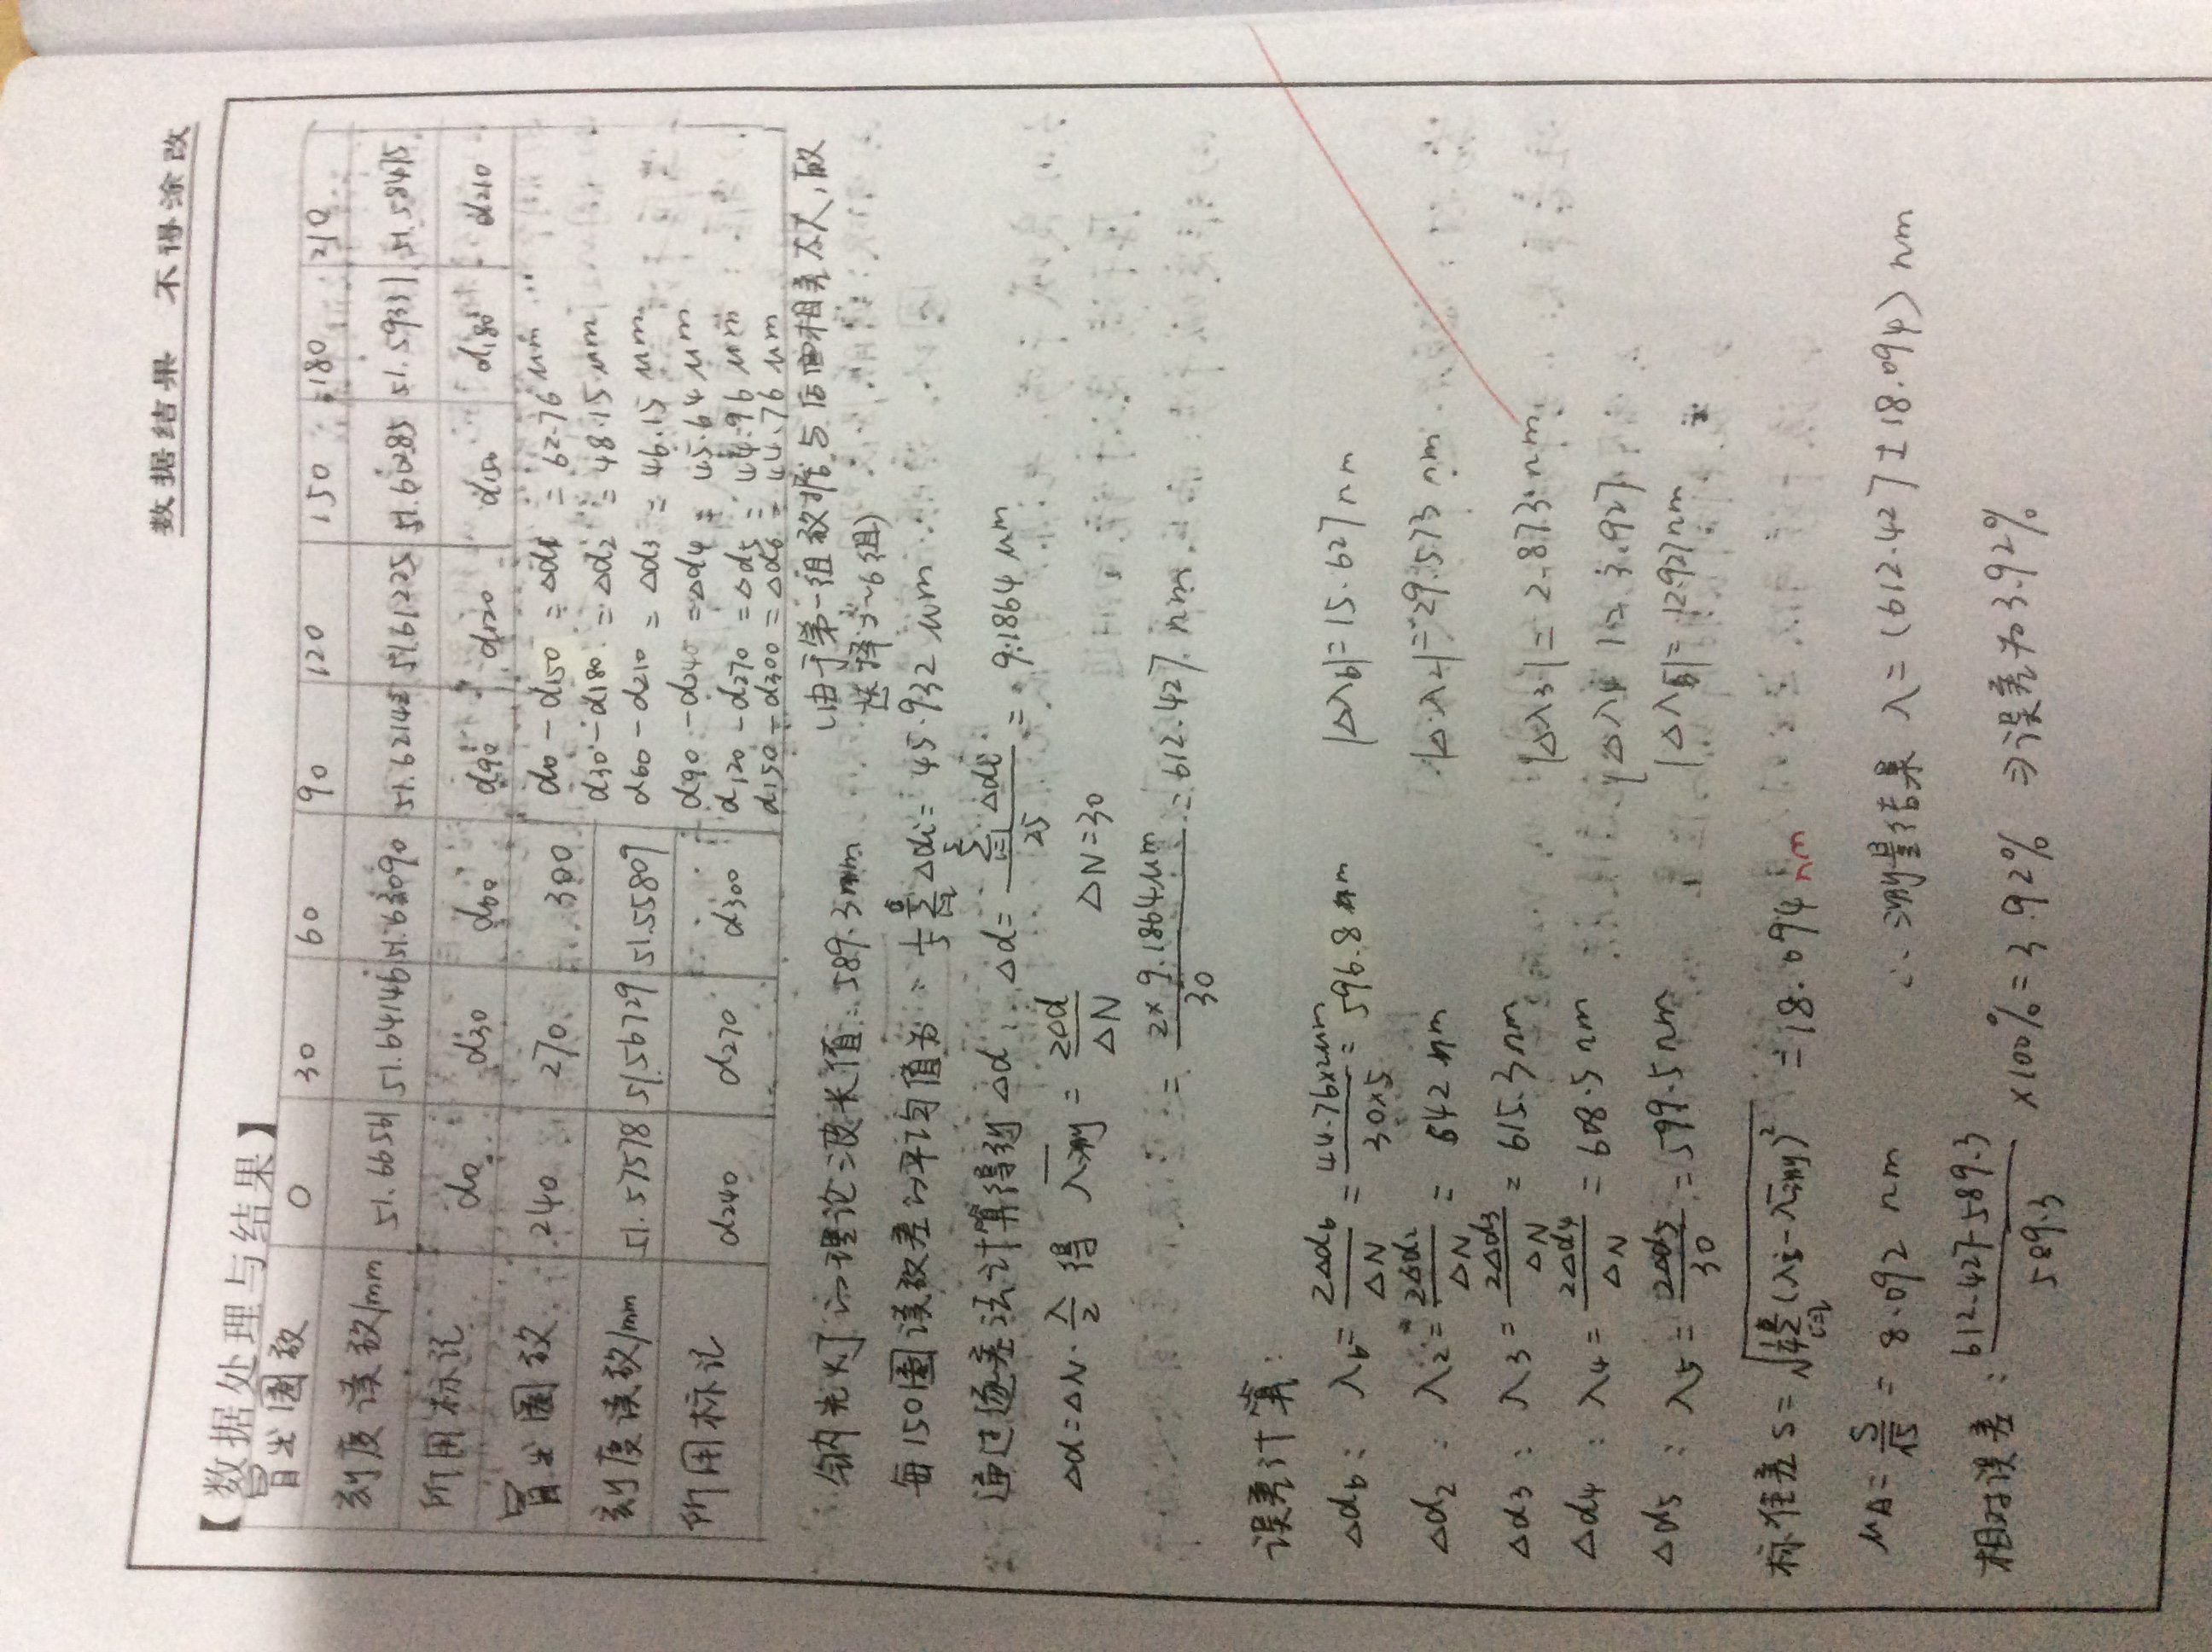 数据结果 不得涂改
【数据处理与结果】
冒出圈数 0 30 60 90 120 150 180 210
刻度读数/mm 51.66561 51.64146 51.63090 51.62142 51.61225 51.60285 51.59331 51.58475
所用标记 d0 d30 d60 d90 d120 d150 d180 d210
冒出圈数 240 270 300
刻度读数/mm 51.57578 51.56729 51.55809
所用标记 d240 d270 d300
d0 - d150 = Δd1 = 62.76 μm
d30 - d180 = Δd2 = 48.15 μm
d60 - d210 = Δd3 = 46.15 μm
d90 - d240 = Δd4 = 45.64 μm
d120 - d270 = Δd5 = 44.96 μm
d150 - d300 = Δd6 = 44.76 μm
(由于第一组数据与后面相差太大,故
选择2~6组)
钠光灯的理论波长值: 589.3nm
每150圈读数差的平均值为: 1/5 Σ Δdi = 45.932 μm
通过逐差法计算得到Δd: Δd = Σ Δdi / 25 = 9.1864 μm
Δd=ΔN·λ/2 得 λ测 = 2Δd/ΔN ΔN=30
= 2×9.1864μm / 30 = 612.427 nm
误差计算:
Δd6: λ6 = 2Δd6/ΔN = 44.76×2μm / 30×5 = 596.8 nm |Δλ6|=15.627 nm
Δd2: λ2 = 2Δd2/ΔN = 642 nm |Δλ2|=29.573 nm
Δd3: λ3 = 2Δd3/ΔN = 615.3nm |Δλ3|= 2.873 nm
Δd4: λ4 = 2Δd4/ΔN = 608.5 nm |Δλ4|= 3.927
Δd5: λ5 = 2Δd5/30 = 599.5 nm |Δλ5|= 12.927nm
标准差 S = √(1/4 Σ i=2 (λi - λ测)²) = 18.094 nm
μA = S/√5 = 8.092 nm ∴ 测量结果 λ=(612.427±18.094) nm
相对误差: 612.427-589.3 / 589.3 ×100% = 3.92% ⇒误差为3.92%